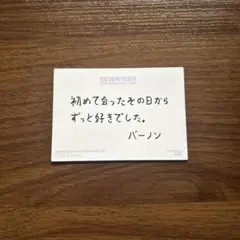 SEVENTEEN
初めて会ったその日から
ずっと好きでした。
バーノン